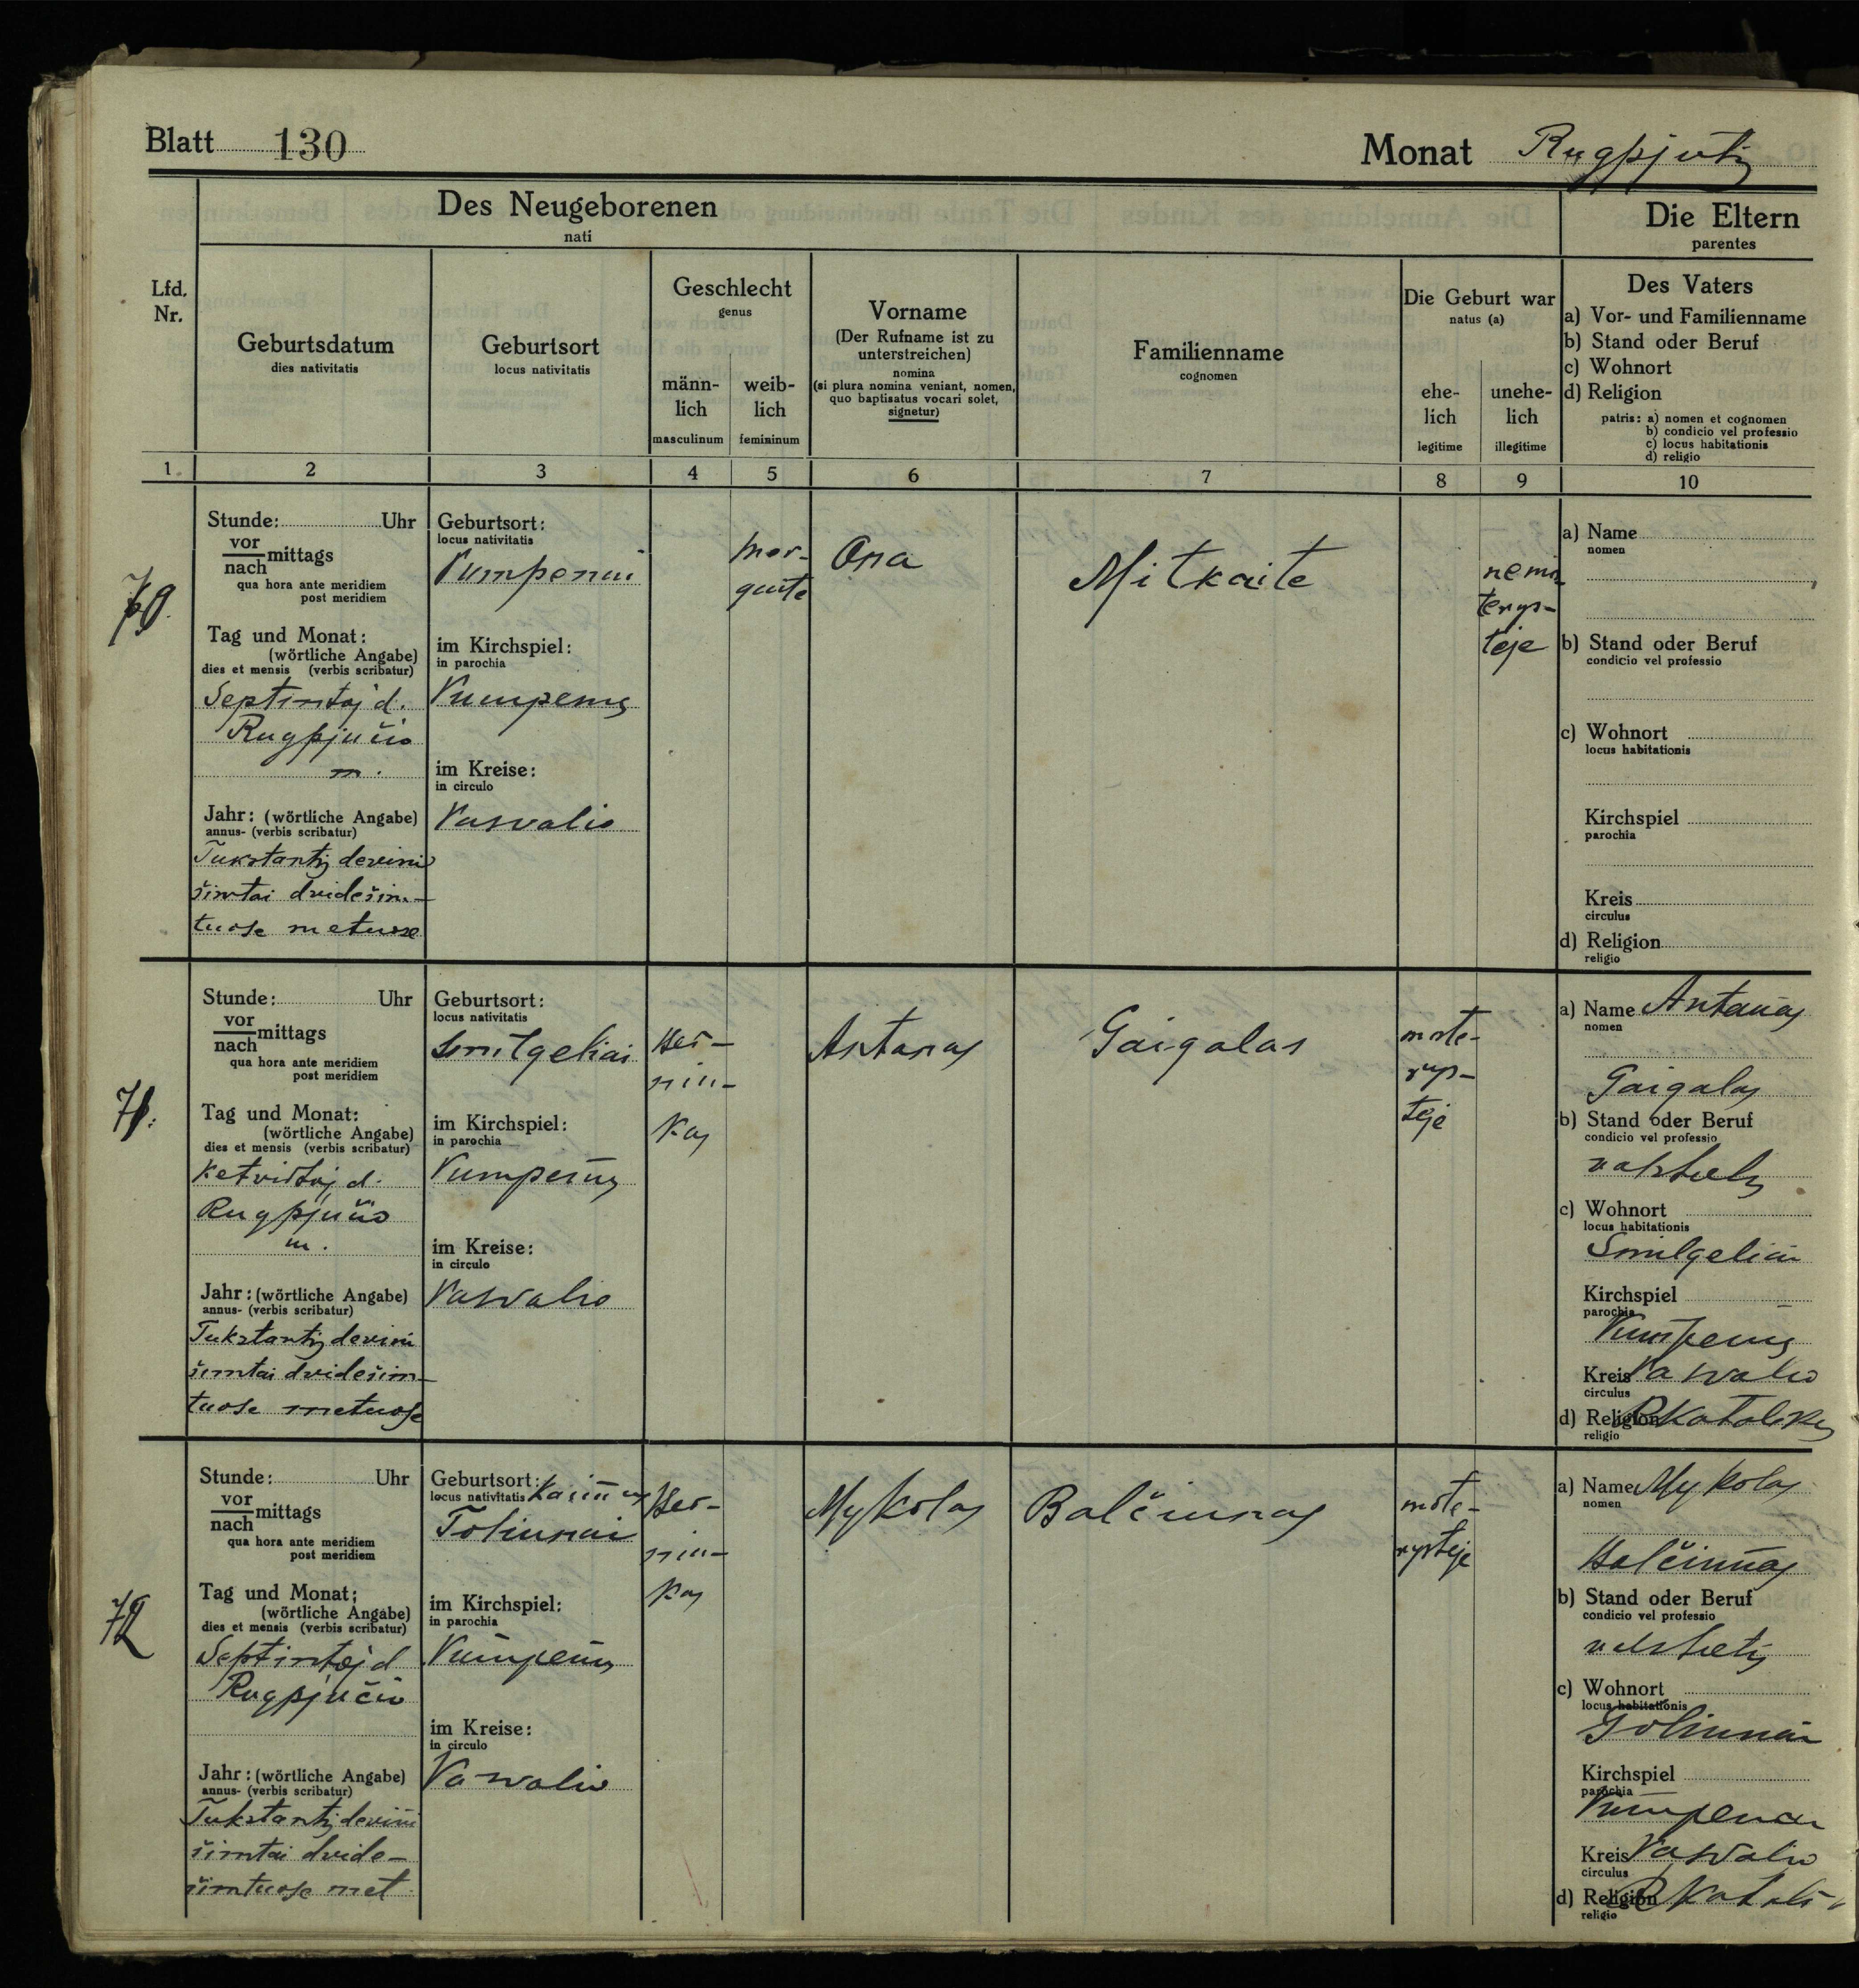 Blatt 130
Monat Rugpjutis
Des Neugeborenen
nati
Die Eltern
parentes
Lfd.
Nr.
Geburtsdatum
dies nativitatis
Geburtsort
locus nativitatis
Geschlecht
genus
männ-
lich
masculinum
weib-
lich
femininum
Vorname
(Der Rufname ist zu
unterstreichen)
nomina
(si plura nomina veniant, nomen,
quo baptisatus vocari solet,
signetur)
Familienname
cognomen
Die Geburt war
natus (a)
ehe-
lich
legitime
unehe-
lich
illegitime
Des Vaters
a) Vor- und Familienname
b) Stand oder Beruf
c) Wohnort
d) Religion
patris: a) nomen et cognomen
b) condicio vel professio
c) locus habitationis
d) religio
1 2 3 4 5 6 7 8 9 10
70.
Stunde: Uhr
vor
nach mittags
qua hora ante meridiem
post meridiem
Tag und Monat:
(wörtliche Angabe)
dies et mensis (verbis scribatur)
Septintąj d.
Rugpjučio
m.
Jahr: (wörtliche Angabe)
annus- (verbis scribatur)
Tukstantis devini
šimtai dvidešim-
tuose metuose
Geburtsort:
locus nativitatis
Pumpenai
im Kirchspiel:
in parochia
Pumpenų
im Kreise:
in circulo
Pasvalio
mer-
gaite
Ona
Mitkaite
nemo
terys-
teje
a) Name
nomen
b) Stand oder Beruf
condicio vel professio
c) Wohnort
locus habitationis
Kirchspiel
parochia
Kreis
circulus
d) Religion
religio
71.
Stunde: Uhr
vor
nach mittags
qua hora ante meridiem
post meridiem
Tag und Monat:
(wörtliche Angabe)
dies et mensis (verbis scribatur)
Ketvirtąj d.
Rugpjučio
m.
Jahr: (wörtliche Angabe)
annus- (verbis scribatur)
Tukstantis devini
šimtai dvidešim-
tuose metuose
Geburtsort:
locus nativitatis
Smilgeliai
im Kirchspiel:
in parochia
Pumpenų
im Kreise:
in circulo
Pasvalio
Ber-
niu-
kas
Antanas
Gaigalas
mote-
rys-
teje
a) Name Antanas
nomen
Gaigalas
b) Stand oder Beruf
condicio vel professio
c) Wohnort
locus habitationis
Smilgeliai
Kirchspiel
parochia
Pumpenų
Kreis Pasvalio
circulus
d) Religion R Katalikų
religio
72
Stunde: Uhr
vor
nach mittags
qua hora ante meridiem
post meridiem
Tag und Monat:
(wörtliche Angabe)
dies et mensis (verbis scribatur)
Septintąj d
Rugpjučio
Jahr: (wörtliche Angabe)
annus- (verbis scribatur)
Tukstantis devini
šimtai dvide-
šimtuose met.
Geburtsort:
locus nativitatis
Toliunai
im Kirchspiel:
in parochia
Pumpenų
im Kreise:
in circulo
Pasvalio
Ber-
niu-
kas
Mykolas
Balčiunas
mote-
rysteje
a) Name Mykolas
nomen
Balčiunas
b) Stand oder Beruf
condicio vel professio
c) Wohnort
locus habitationis
Toliunai
Kirchspiel
parochia
Pumpenai
Kreis Pasvalio
circulus
d) Religion
religio